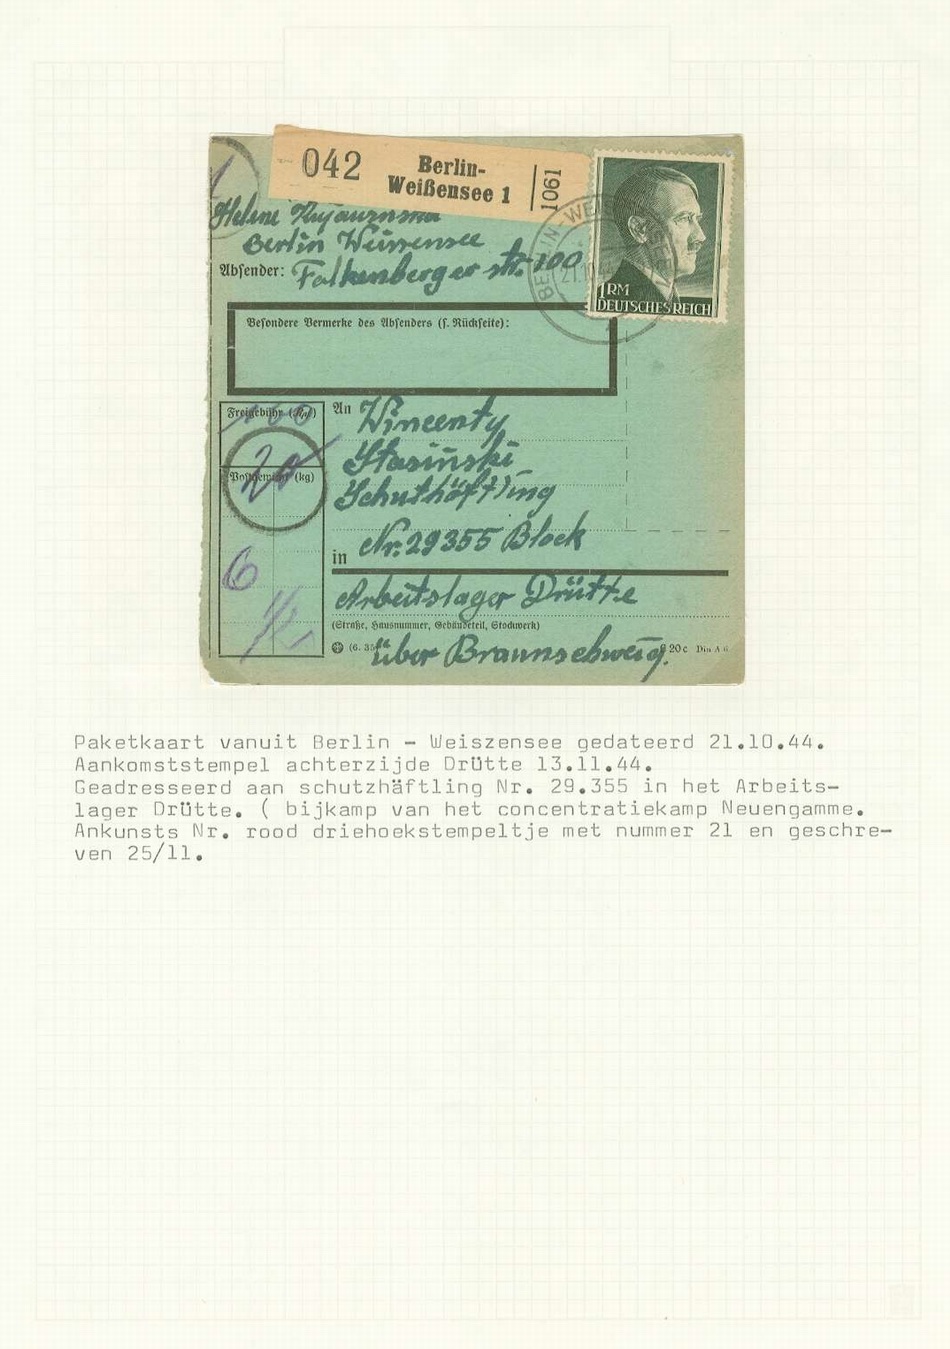 042
Berlin-
Weißensee 1
1061
Helene
Berlin Weissensee
Absender: Falkenberger str. 100
BERLIN-WEI
21.10.44
1RM
DEUTSCHES REICH
Besondere Vermerke des Absenders (s. Rückseite):
Freigebühr (Rpf)
100
20
Postgewicht (kg)
6
An Wincenty
Stasiński
Schuthäftling
Nr. 29355 Block
in
Arbeitslager Drütte
(Straße, Hausnummer, Gebäudeteil, Stockwerk)
über Braunschweig.
(6. 35
20 c Din A 6
Paketkaart vanuit Berlin - Weiszensee gedateerd 21.10.44.
Aankomststempel achterzijde Drütte 13.11.44.
Geadresseerd aan schutzhäftling Nr. 29.355 in het Arbeits-
lager Drütte. ( bijkamp van het concentratiekamp Neuengamme.
Ankunsts Nr. rood driehoekstempeltje met nummer 21 en geschre-
ven 25/11.